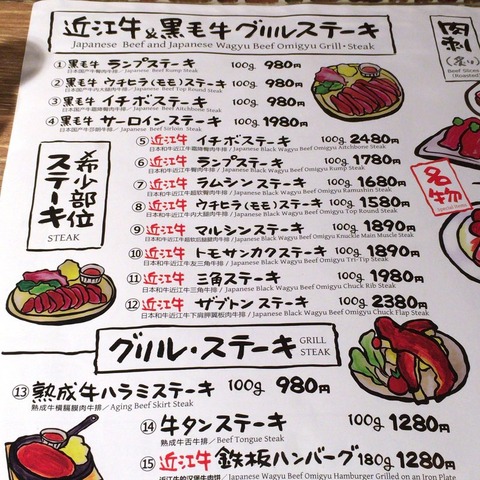 近江牛&黒毛牛グリルステーキ
Japanese Beef and Japanese Wagyu Beef Omigyu Grill・Steak
①黒毛牛 ランプステーキ 100g 980円
日本国产牛臀肉牛排/Japanese Beef Rump Steak
②黒毛牛 ウチヒラ(モモ)ステーキ 100g 980円
日本国产牛内大腿肉牛排/Japanese Beef Top Round Steak
③黒毛牛 イチボステーキ 100g 980円
Japanese Beef Aitchbone Steak
④黒毛牛 サーロインステーキ 100g 1980円
日本国产牛西冷牛排/Japanese Beef Sirloin Steak
肉刺し
(炙り)
Beef Slices
(Roasted)
希少部位
ステーキ
STEAK
⑤近江牛 イチボステーキ 100g 2480円
Japanese Black Wagyu Beef Omigyu Aitchbone Steak
⑥近江牛 ランプステーキ 100g 1780円
日本和牛近江牛臀肉牛排/Japanese Black Wagyu Beef Omigyu Rump Steak
⑦近江牛 ラムシンステーキ 100g 1680円
Japanese Black Wagyu Beef Omigyu Ramushin Steak
⑧近江牛 ウチヒラ(モモ)ステーキ 100g 1580円
日本和牛近江牛内大腿肉牛排/Japanese Black Wagyu Beef Omigyu Top Round Steak
⑨近江牛 マルシンステーキ 100g 1890円
Japanese Black Wagyu Beef Omigyu Knuckle Main Muscle Steak
⑩近江牛 トモサンカクステーキ 100g 1890円
日本和牛近江牛友三角牛排/Japanese Black Wagyu Beef Omigyu Tri-Tip Steak
⑪近江牛 三角ステーキ 100g 1980円
日本和牛近江牛三角牛排/Japanese Black Wagyu Beef Omigyu Chuck Rib Steak
⑫近江牛 ザブトンステーキ 100g 2380円
日本和牛近江牛下肩胛翼板肉牛排/Japanese Black Wagyu Beef Omigyu Chuck Flap Steak
名物
Special Items
グリル・ステーキ
GRILL
STEAK
⑬熟成牛ハラミステーキ 100g 980円
熟成牛横膈膜肉牛排/Aging Beef Skirt Steak
⑭牛タンステーキ 100g 1280円
熟成牛舌牛排/Beef Tongue Steak
⑮近江牛 鉄板ハンバーグ 180g 1280円
日本和牛近江牛的汉堡牛肉饼/Japanese Wagyu Beef Omigyu Hamburger Grilled on an Iron Plate